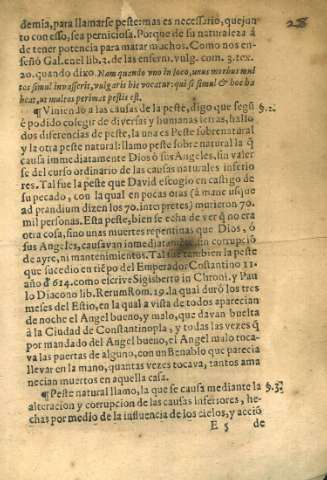 demia, para llamarse peste: mas es necessario, que jun-
to con esso, sea perniciosa. Porque de su naturaleza á
de tener potencia para matar muchos. Como nos en-
señó Gal. en el lib. 3. de las enferm. vulg. com. 3. tex.
20. quando dixo. Nam quando vno in loco, unus morbus mul
tos simul invasserit, vulgaris hic vocatur: qui si simul & hoc ha
beat, ut multos perimat pestis est.
¶ Viniendo a las causas de la peste, digo que segũ
é podido colegir de diversas y humanas letras, hallo
dos diferencias de peste, la una es Peste sobrenatural
y la otra peste natural: llamo peste sobre natural la q̃
causa immediatamente Dios ó sus Angeles, sin valer
se del curso ordinario de las causas naturales inferio
res. Tal fue la peste que David escogio en castigo de
su pecado, con la qual en pocas oras (à mane usque
ad prandium dizen los 70. interpretes) murieron 70.
mil personas. Esta peste, bien se echa de ver q̃ no era
otra cosa, sino unas muertes repentinas que Dios, ó
sus Angeles, causavan inmediatamente, sin corrupció
de ayre, ni mantenimientos. Tal fue tambien la peste
que sucedio en tiẽpo del Emperador Costantino 11.
año đ 614. como escrive Sigisberto in Chroni. y Pau
lo Diacono lib. Rerum Rom. 19. la qual duró los tres
meses del Estio, en la qual a vista de todos aparecian
de noche el Angel bueno, y malo, que davan buelta
à la Ciudad de Constantinopla, y todas las vezes q̃
por mandado del Angel bueno, el Angel malo toca-
va las puertas de alguno, con un Benablo que parecia
llevar en la mano, quantas vezes tocava, tantos ama
necian muertos en aquella casa.
¶ Peste natural llamo, la que se causa mediante la
alteracion y corrupcion de las causas inferiores, he-
chas por medio de la influencia de los cielos, y acció
E 5 de
28
§. 2.
§. 3.